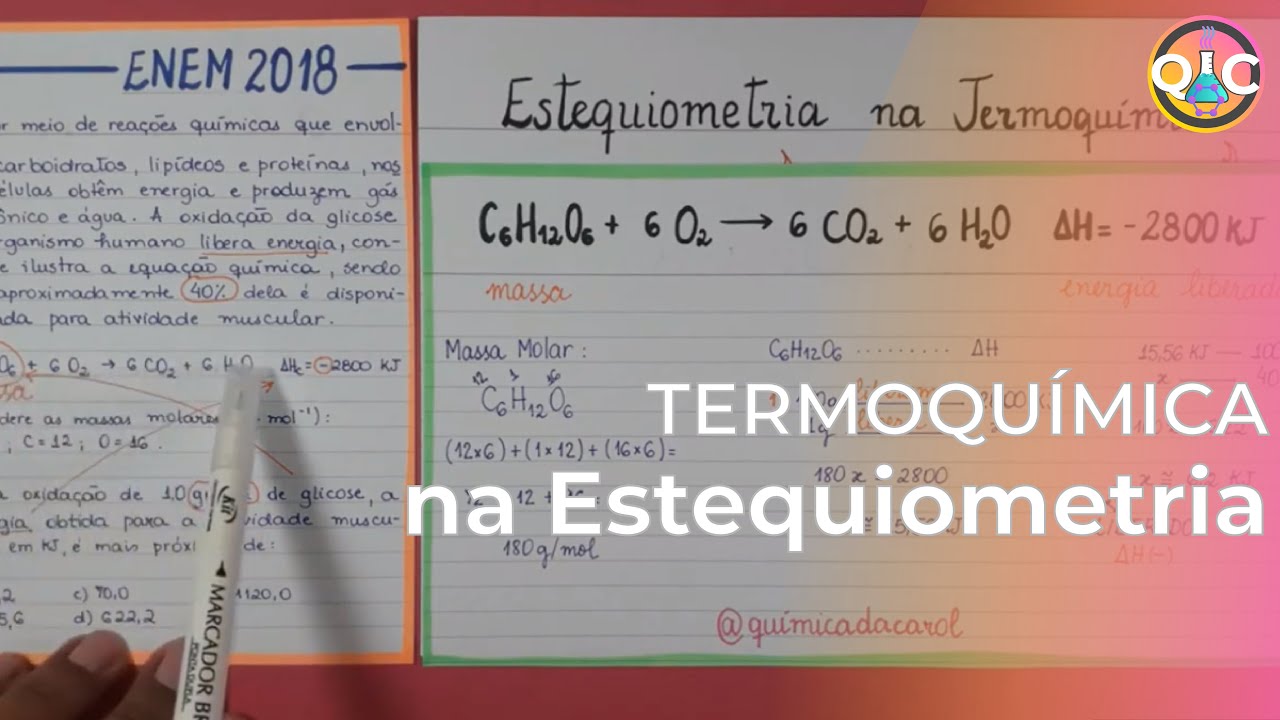 ENEM 2018
r meio de reações químicas que envol-
carboidratos, lipídeos e proteínas, nas
élulas obtêm energia e produzem gás
ônico e água. A oxidação da glicose
rganismo humano libera energia, con-
e ilustra a equação química, sendo
aproximadamente 40% dela é disponi-
ada para atividade muscular.
O6 + 6 O2 → 6 CO2 + 6 H2O ΔHc = -2800 KJ
dere as massas molares mol⁻¹):
, C = 12 ; O = 16 .
a oxidação de 1,0 g de glicose, a
gia obtida para a vidade muscu-
em KJ, é mais próxi de:
,2 c) 70,0 1120,0
5,6 d) 622,2
MARCADOR BR
Estequiometria na Termoquím
C6H12O6 + 6 O2 → 6 CO2 + 6 H2O ΔH = -2800 KJ
massa energia liberada
Massa Molar :
12 1 16
C6H12O6
(12x6)+(1x12)+(16x6)=
180g/mol
C6H12O6 ......... ΔH
180 x = 2800
15,56 KJ
ΔH(-)
@químicadacarol
QC
TERMOQUÍMICA
na Estequiometria